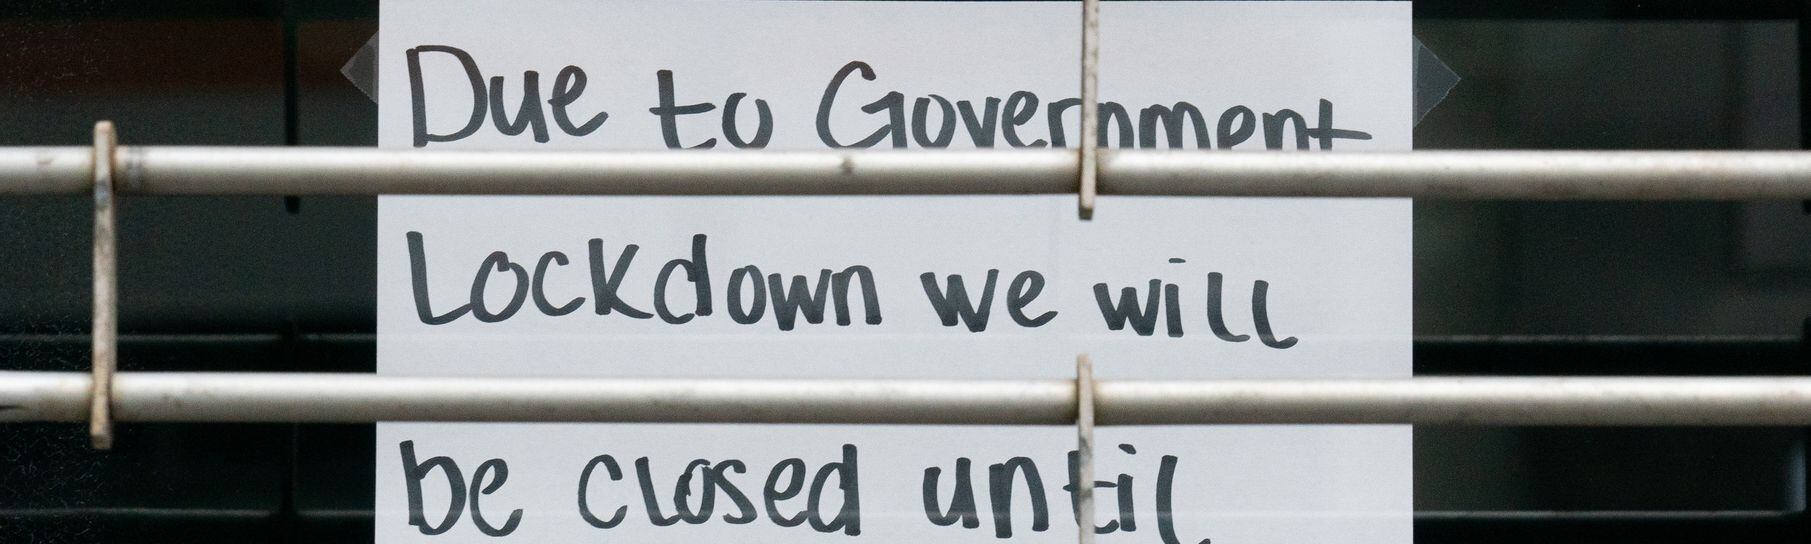 Due to Government
Lockdown we will
be closed until